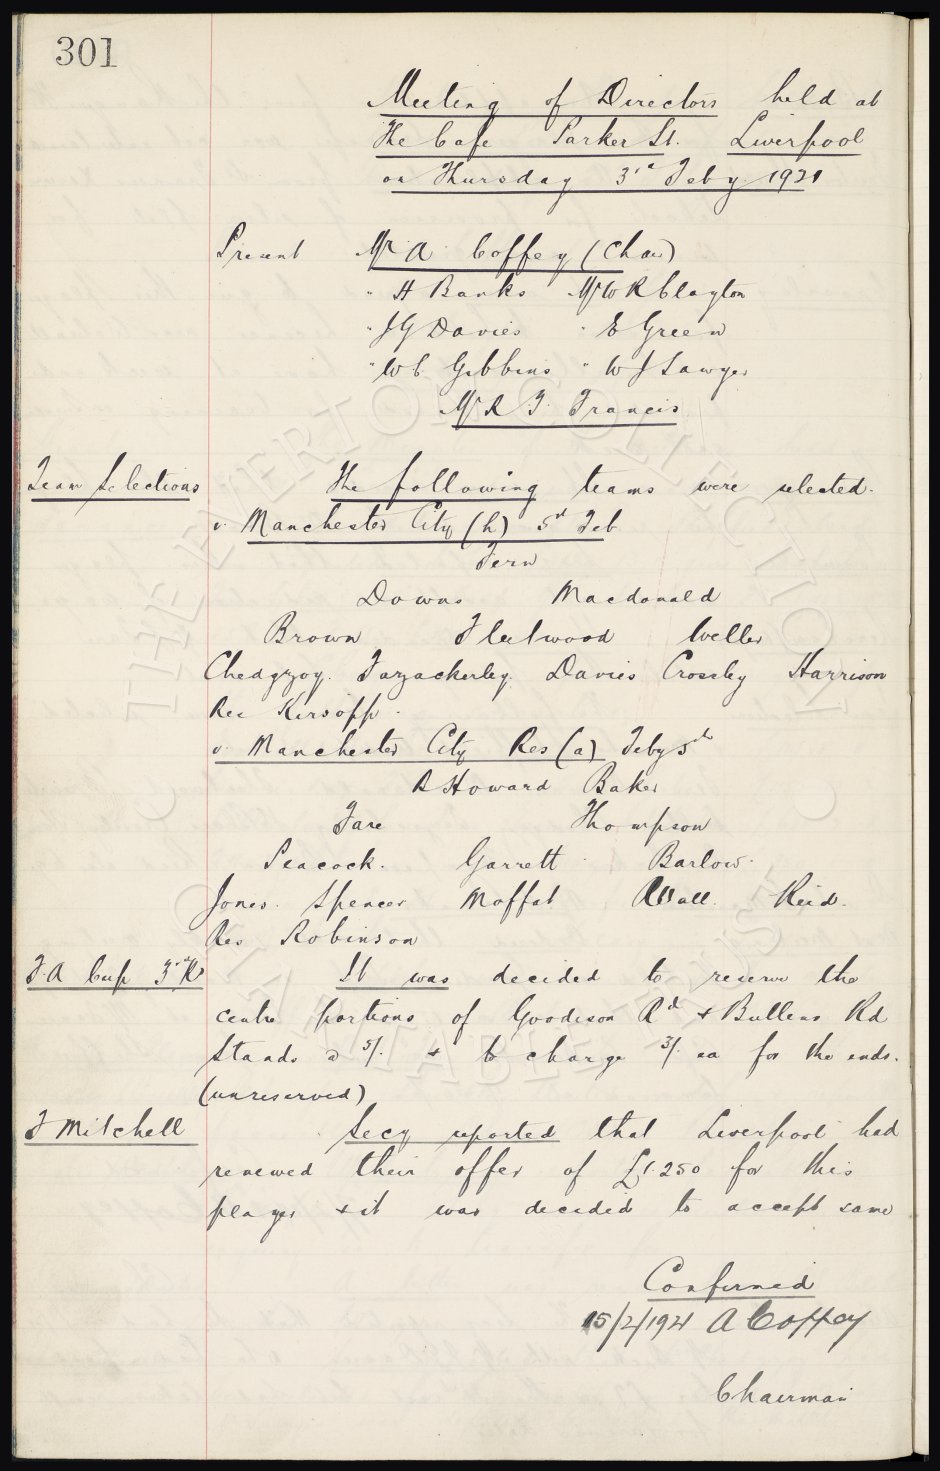 301
Meeting of Directors held at
The Cafe Parker St. Liverpool
on Thursday 3rd Feby 1921
Present Mr A Coffey (Chair)
" H Banks Mr W R Clayton
" J G Davies " E Green
" W C Gibbins " W J Sawyer
Mr R T Francis
Team Selections The following teams were selected.
v. Manchester City (h) 5th Feb
Fern
Downs Macdonald
Brown Fleetwood Weller
Chedgzoy. Fazackerley. Davies Crossley Harrison
Res Kirsopp.
v. Manchester City Res (a) Feby 5th
B Howard Baker
Fare Thompson
Peacock. Garrett Barlow.
Jones. Spencer Moffat Wall. Reid.
Res Robinson
F.A Cup 3rd Rd It was decided to reserve the
centre portions of Goodison Rd & Bullens Rd
Stands @ 5/. & to charge 3/. ea for the ends.
(unreserved)
F Mitchell Secy reported that Liverpool had
renewed their offer of £1.250 for this
player & it was decided to accept same
Confirmed
15/2/1921 A Coffey
Chairman
THE EVERTON COLLECTION
CHARITABLE TRUST